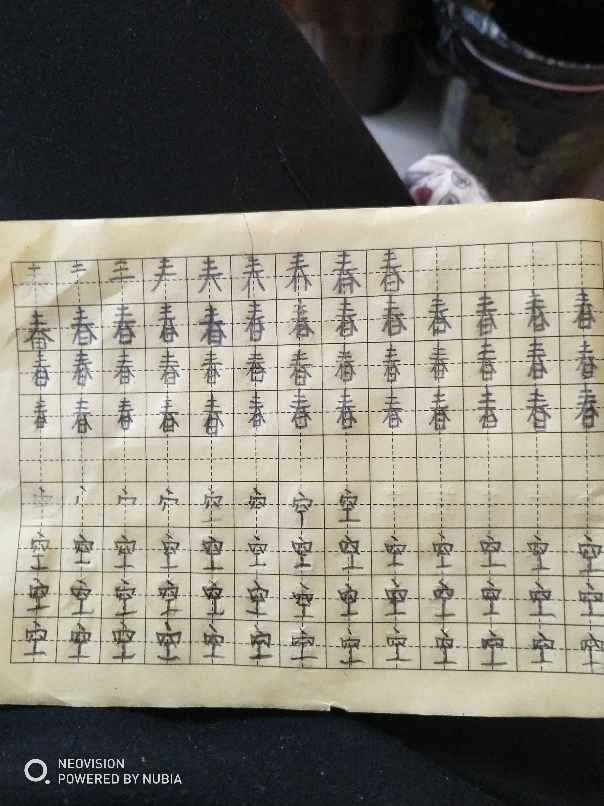 一 二 三 𡗗 𡗗 春 春
春 春 春 春 春 春 春 春 春 春 春 春 春
春 春 春 春 春 春 春 春 春 春 春 春 春
春 春 春 春 春 春 春 春 春 春 春 春 春
丶 宀 穴 空 空
空 空 空 空 空 空 空 空 空 空 空 空 空
空 空 空 空 空 空 空 空 空 空 空 空 空
空 空 空 空 空 空 空 空 空 空 空 空 空
NEOVISION
POWERED BY NUBIA